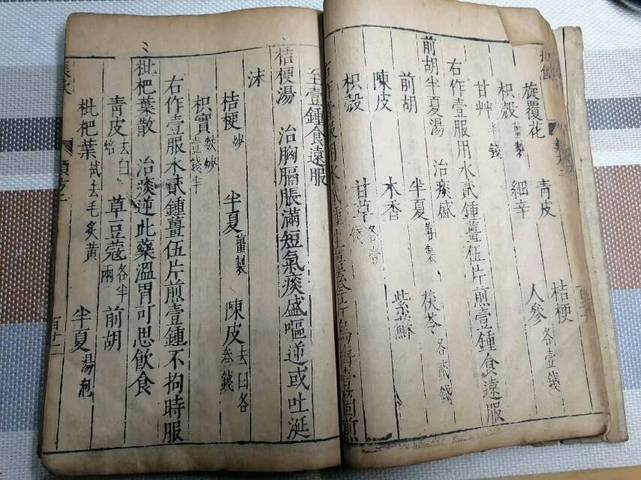 旋覆花 青皮 桔梗
枳殼 薑製 細辛 人參 各壹錢
甘艸 半錢
右作壹服用水貳鍾薑伍片煎壹鍾食遠服
前胡半夏湯 治痰盛
前胡 半夏 薑製 茯苓 各貳錢
陳皮 木香 紫蘇
枳殼 甘草 各
右作壹服用水貳鍾
至壹鍾食遠服
桔梗湯 治胸膈脹滿短氣痰盛嘔逆或吐涎
沫
桔梗 炒 半夏 薑製 陳皮 去白各叁錢
枳實 麩炒壹錢半
右作壹服水貳鍾薑伍片煎壹鍾不拘時服
枇杷葉散 治痰逆此藥溫胃可思飲食
青皮 去白焙 草豆蔻 各半兩 前胡
枇杷葉 拭去毛炙黃 半夏 湯泡